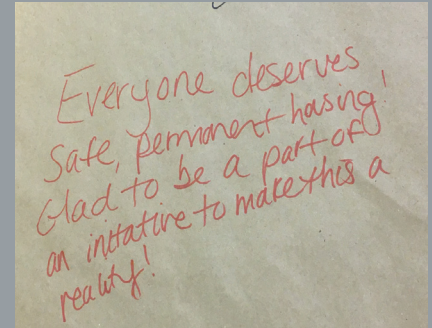 Everyone deserves
safe, permanent hosing!
Glad to be a part of
an inttative to make this a
reality!